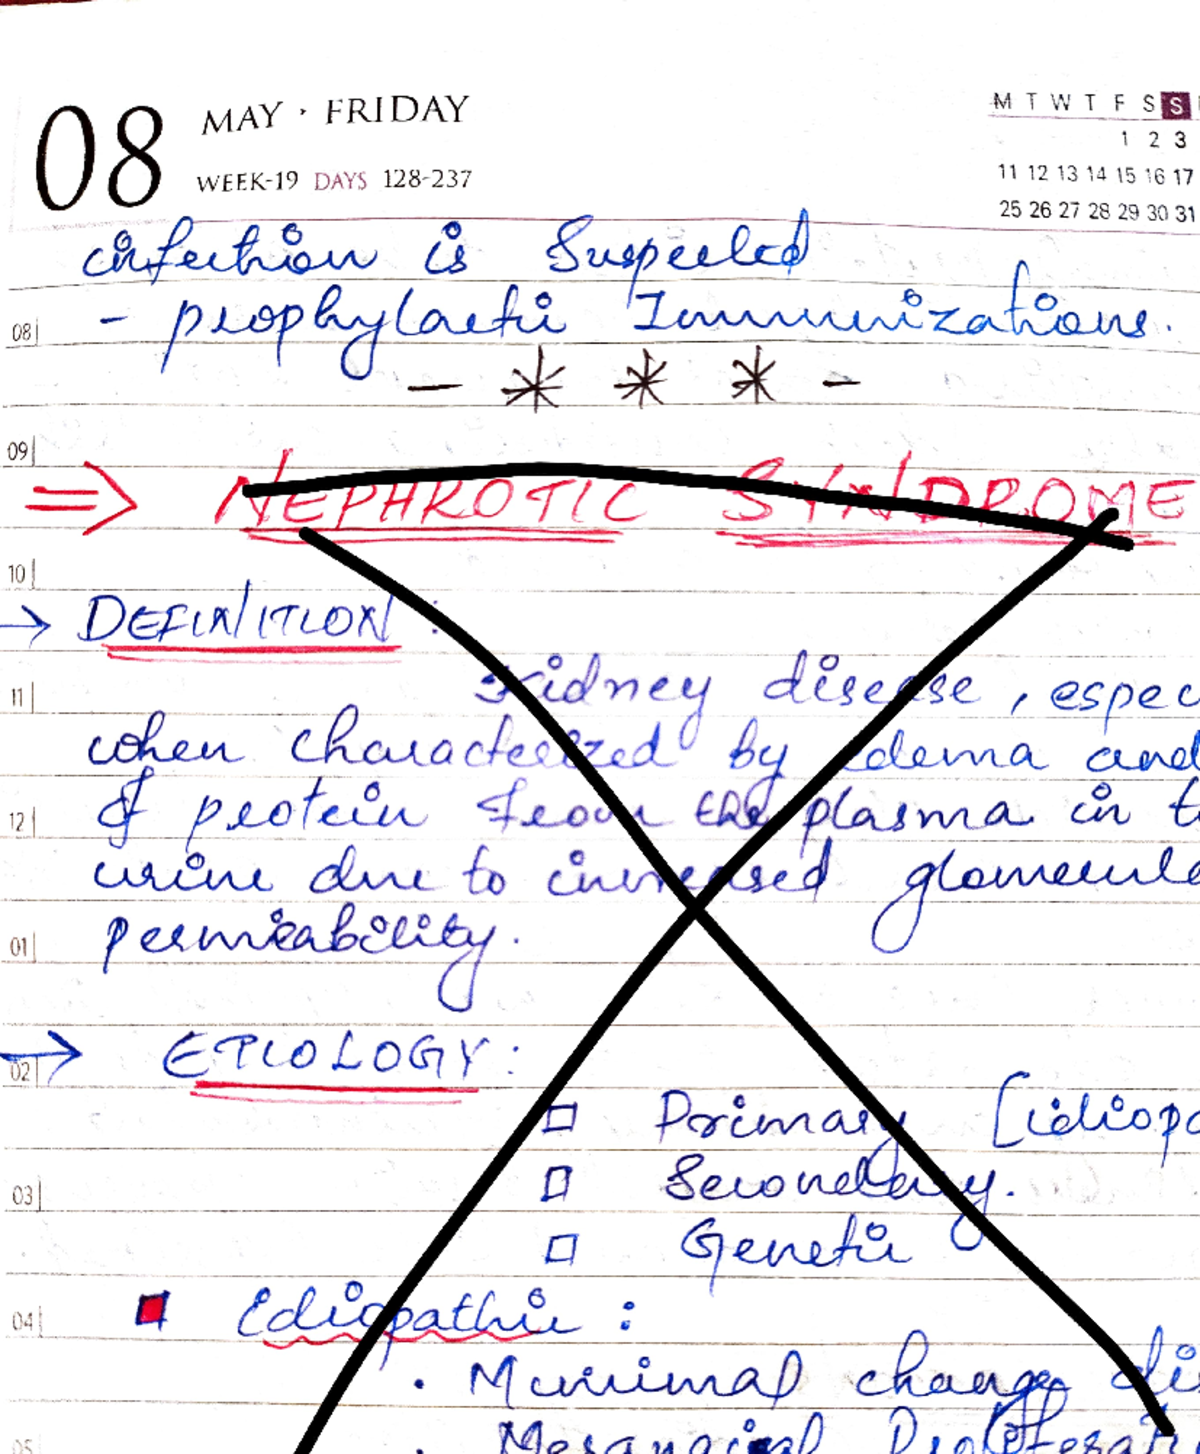 08 MAY · FRIDAY
WEEK-19 DAYS 128-237
M T W T F S S
1 2 3
11 12 13 14 15 16 17
25 26 27 28 29 30 31
infection is Suspected
08 - prophylactic Immunizations.
- * * * -
09
⇒ NEPHROTIC SYNDROME
10
→ DEFINITION :
11 Kidney disease , espec
when characterized by edema and
12 of protein from the plasma in t
urine due to increased glomerula
01 permeability.
02 → ETIOLOGY :
□ Primary [idiopa
03 □ Secondary.
□ Genetic
04 ■ Idiopathic :
· Minimal change di
05 · Mesangial Proliferati